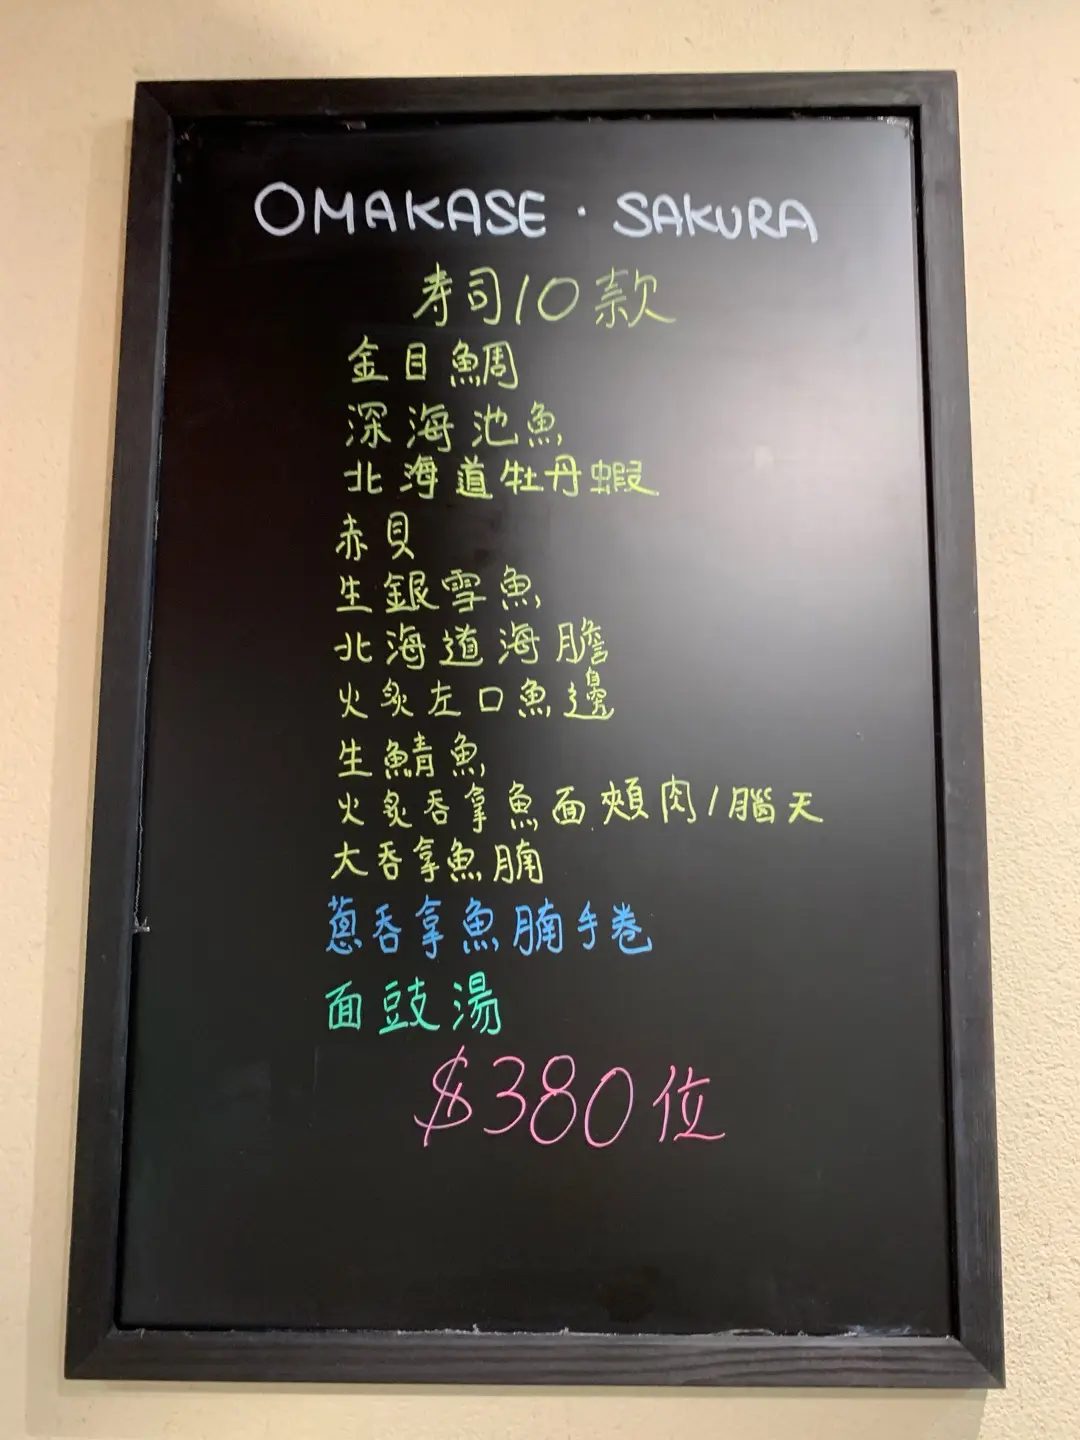 OMAKASE · SAKURA
寿司10款
金目鯛
深海池魚
北海道牡丹蝦
赤貝
生銀雪魚
北海道海膽
火炙左口魚邊
生鯖魚
火炙吞拿魚面頰肉/腦天
大吞拿魚腩
蔥吞拿魚腩手卷
面豉湯
$380位